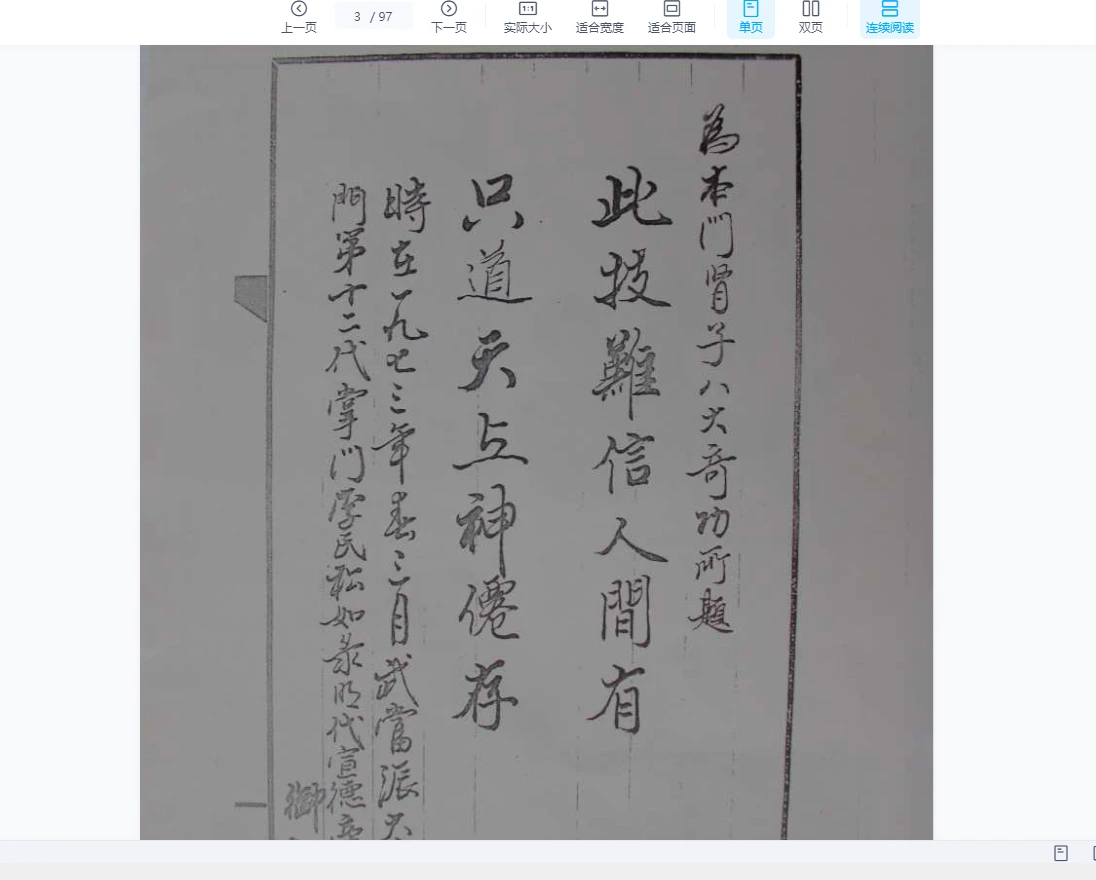 上一页
3 / 97
下一页
实际大小
适合宽度
适合页面
单页
双页
连续阅读
為本門肾子八大奇功所題
此技難信人間有
只道天上神僊存
時在一九七三年春三月武當派
門第十二代掌門李民松如录明代宣德
御